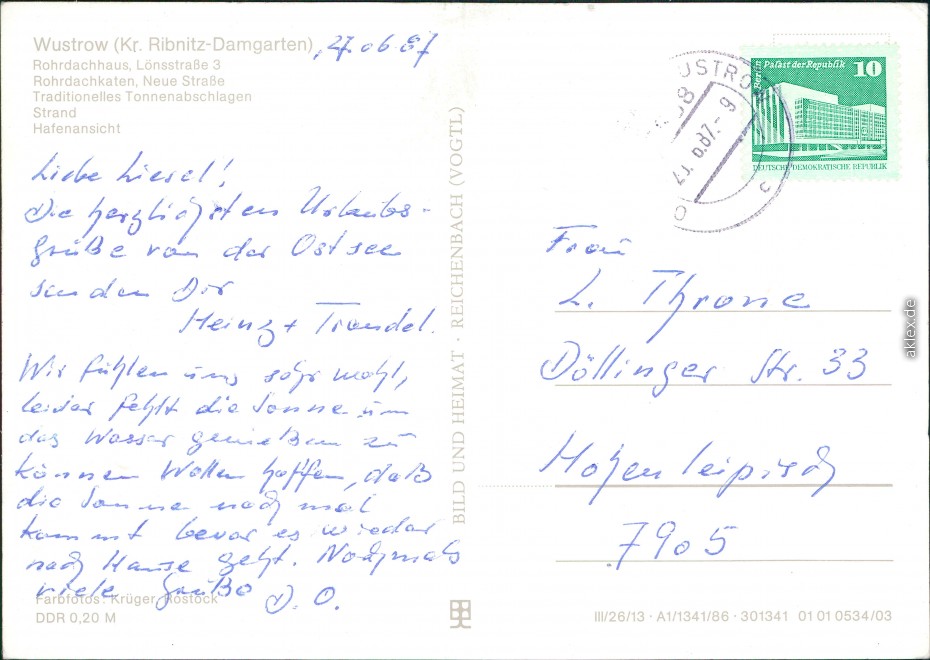 Wustrow (Kr. Ribnitz-Damgarten), 27.06.87
Rohrdachhaus, Lönsstraße 3
Rohrdachkaten, Neue Straße
Traditionelles Tonnenabschlagen
Strand
Hafenansicht
Liebe Liesel!
Die herzlichsten Urlaubs-
grüße von der Ostsee
senden Dir
Heinz + Traudel.
Wir fühlen uns sehr wohl,
leider fehlt die Sonne um
das Wasser genießen zu
können Wollen hoffen, daß
die Sonne noch mal
kommt bevor es wieder
nach Hause geht. Nochmals
viele Grüße D. O.
Farbfotos: Krüger, Rostock
DDR 0,20 M
BILD UND HEIMAT · REICHENBACH (VOGTL)
Berlin Palast der Republik 10
DEUTSCHE DEMOKRATISCHE REPUBLIK
USTROW
.6.87.- 9
c
Frau
L. Throne
Döllinger Str. 33
Hohenleipisch
7905
III/26/13 · A1/1341/86 · 301341 01 01 0534/03
aklex.de